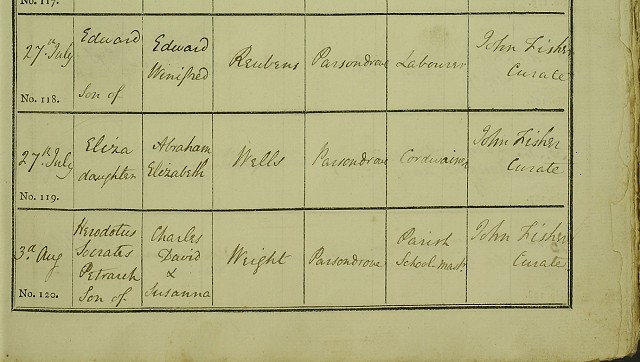 No. 117.
27th July
No. 118.
Edward
Son of
Edward
Winifred
Reubens
Parsondrove
Labourer
John Fisher
Curate
27th July
No. 119.
Eliza
daughter
Abraham
Elizabeth
Wells
Parsondrove
Cordwainer
John Fisher
Curate
3d Aug
No. 120.
Herodotus
Socrates
Petrarch
Son of
Charles
David
&
Susanna
Wright
Parsondrove
Parish
School mastr
John Fisher
Curate